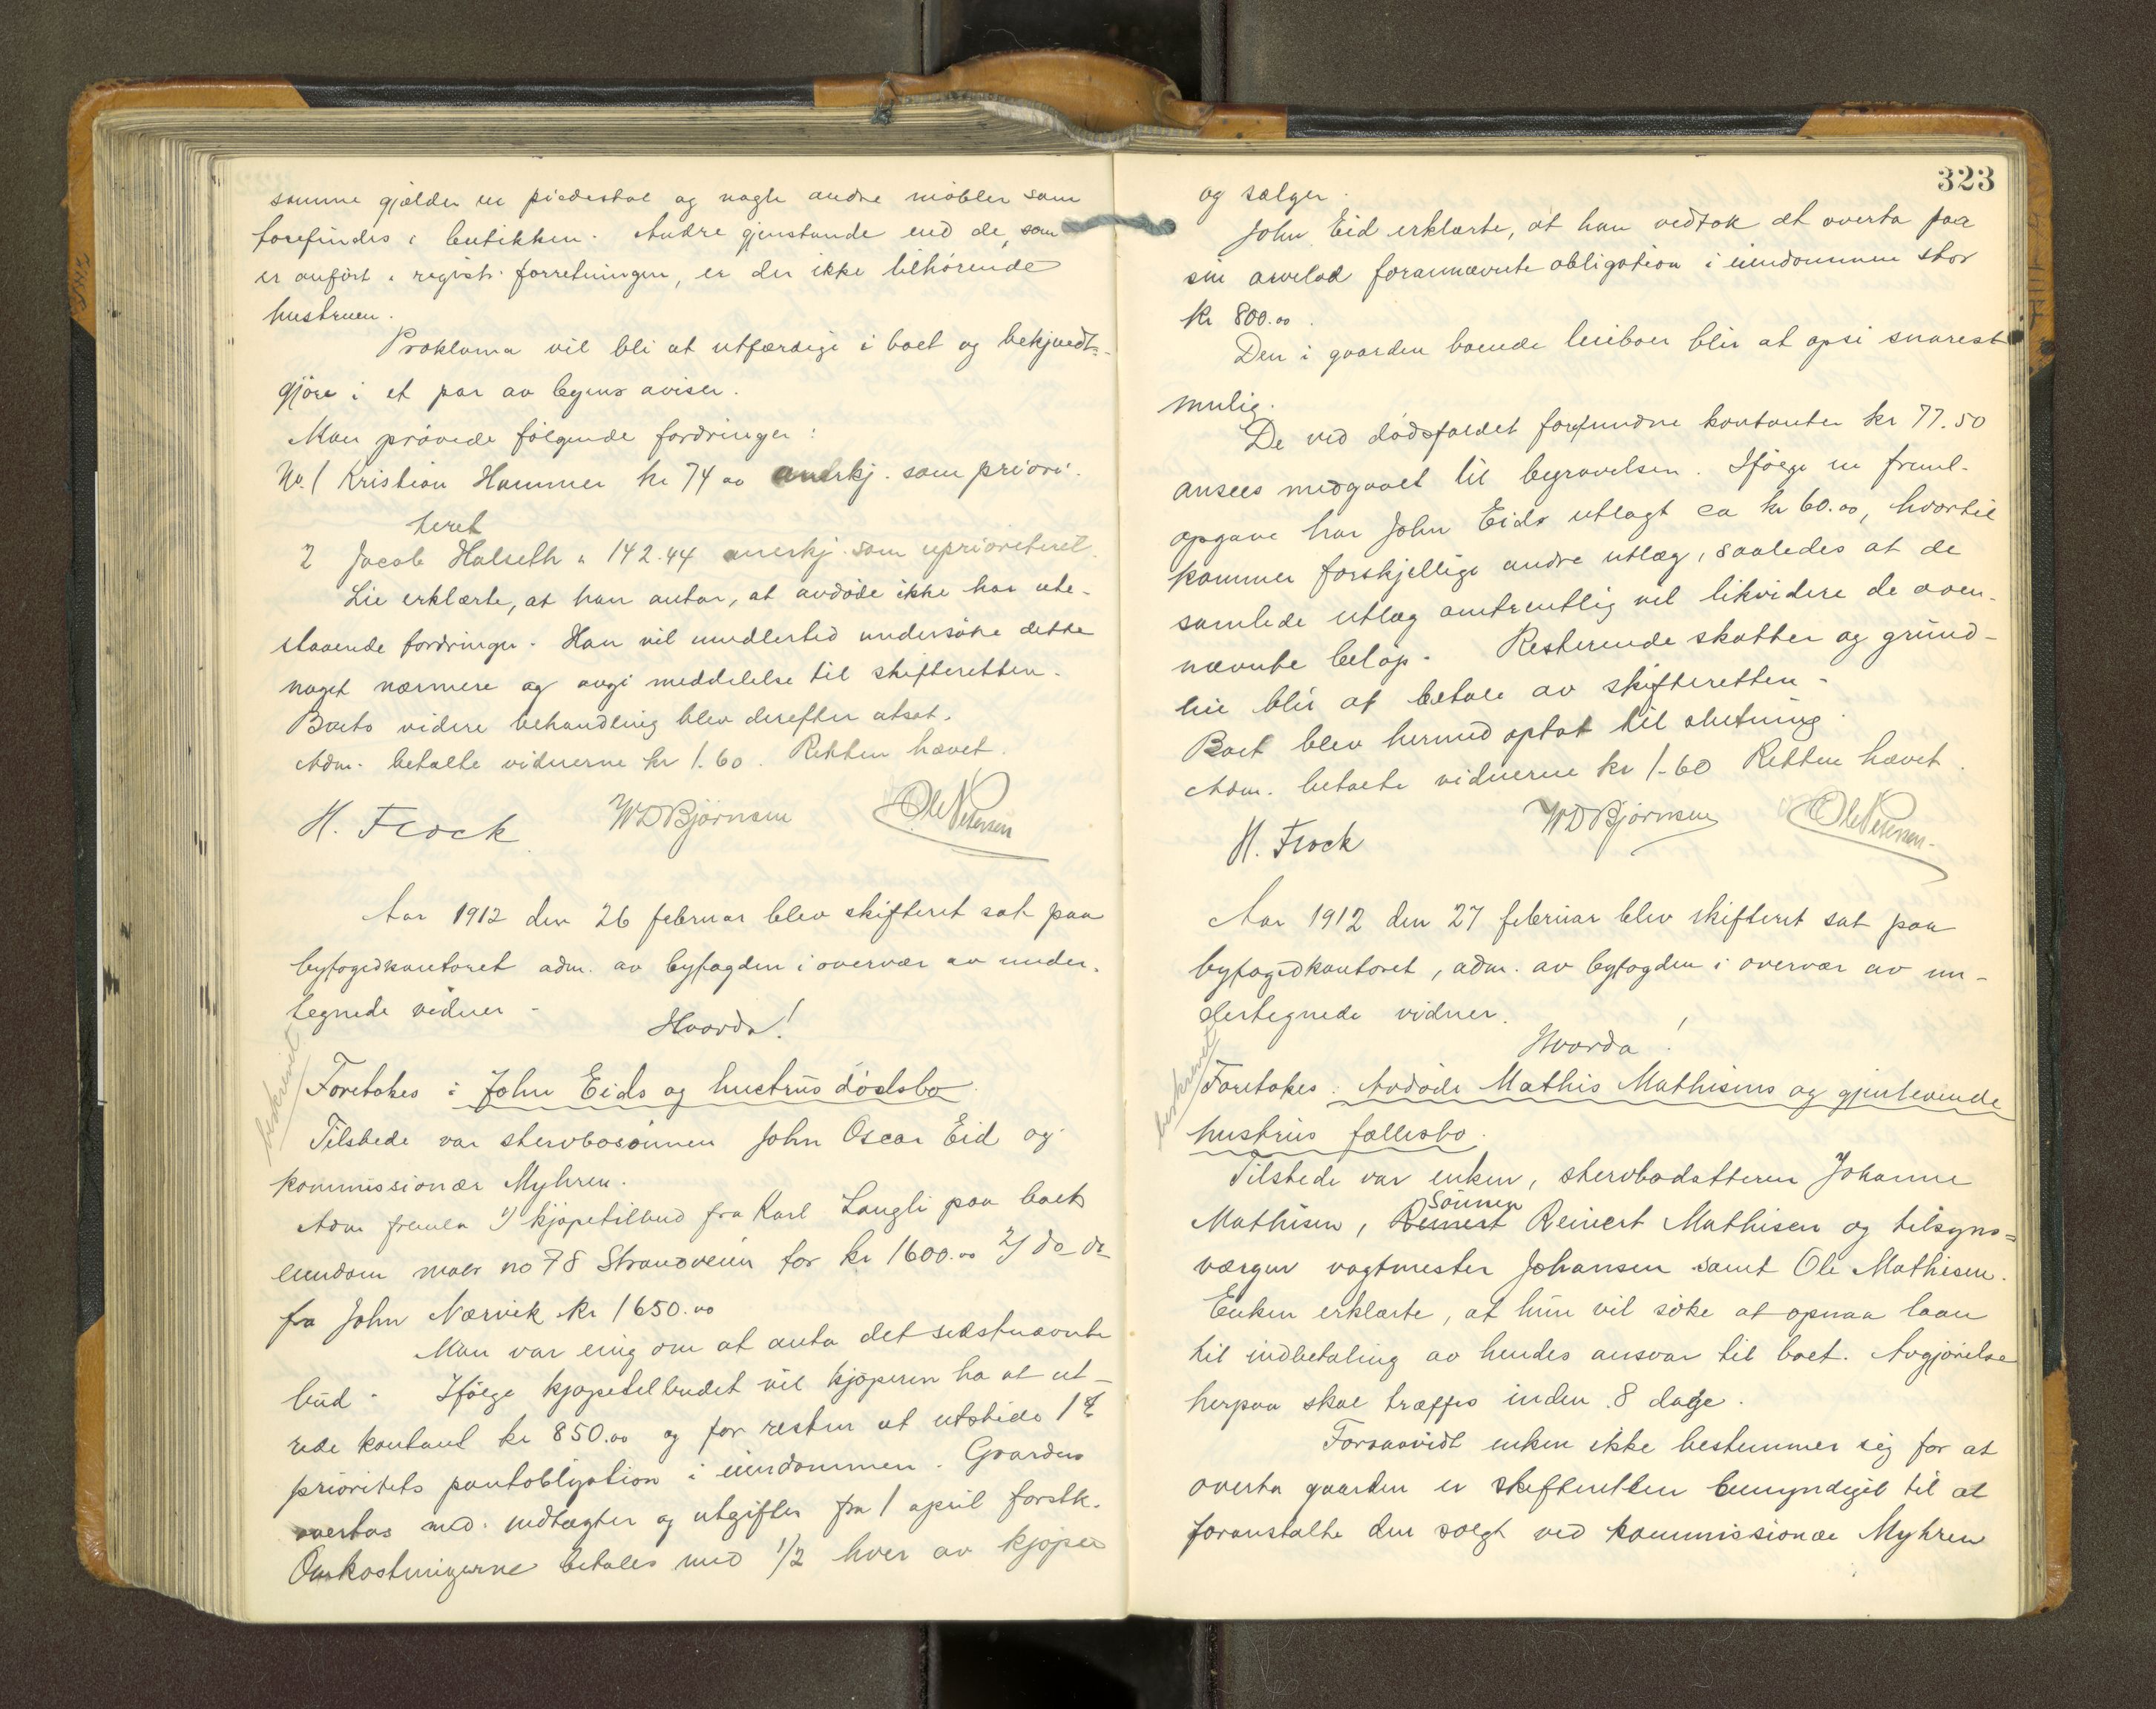 somme gjælder en piedestal og nogle andre møbler som
forefindes i butikken. Andre gjenstande end de, som
er anført i registr. forretningen, er der ikke tilhørende
hustruen.
Proklama vil bli at utfærdige i boet og bekjendt-
gjøre i et par av byens aviser.
Man prøvede følgende fordringer:
No. 1 Kristian Hammer kr 74 00 anerkj. som priori-
teret
2 Jacob Halseth " 142.44 anerkj. som uprioriteret.
Lie erklærte, at han antar, at avdøde ikke har ute-
staaende fordringer. Han vil imidlertid undersøke dette
noget nærmere og avgi meddelelse til skifteretten.
Boets videre behandling blev derefter utsat.
Adm. betalte vidnerne kr 1.60. Retten hævet.
H. Frock WD Bjørnsen Ole Petersen
Aar 1912 den 26 februar blev skifteret sat paa
byfogedkontoret adm. av byfogden i overvær av under-
tegnede vidner -
Hvorda!
beskrevet
Foretokes i John Eids og hustrus dødsbo.
Tilstede var stervbosønnen John Oscar Eid og
kommissionær Myhren.
Adm fremla 1) kjøpetilbud fra Karl Langli paa boets
eiendom matr no 78 Strandveien for kr 1600.00 2) do do
fra John Nærvik kr 1650.00
Man var enig om at anta det sidstnævnte
bud. Ifølge kjøpetilbudet vil kjøperen ha at ut-
rede kontant kr 850.00 og for resten at utstede 1ste
prioritets pantobligation i eiendommen. Gaarden
overtas med indtægter og utgifter fra 1 april førstk.
Omkostningerne betales med 1/2 hver av kjøper
323
og sælger.
John Eid erklærte, at han vedtok at overta paa
sin arvelod forannævnte obligation i eiendommen stor
kr 800.00.
Den i gaarden boende leieboer blir at opsi snarest
mulig.
De ved dødsfaldet forefundne kontanter kr 77.50
ansees medgaaet til begravelsen. Ifølge en freml.
opgave har John Eids utlagt ca kr 60.00, hvortil
kommer forskjellige andre utlæg, saaledes at de
samlede utlæg omtrentlig vil likvidere de oven-
nævnte beløp. Resterende skatter og grund-
leie blir at betale av skifteretten -
Boet blev hermed optat til slutning.
Adm. betalte vidnerne kr 1-60 Retten hævet.
H. Frock WD Bjørnsen Ole Petersen
Aar 1912 den 27 februar blev skifteret sat paa
byfogedkontoret, adm. av byfogden i overvær av un-
dertegnede vidner.
Hvorda!
beskrevet
Foretokes: Avdøde Mathis Mathisens og gjenlevende
hustrus fællesbo.
Tilstede var enken, stervbodatteren Johanne
Sønnen
Mathisen, Reinert Reinert Mathisen og tilsyns-
værgen vagtmester Johansen samt Ole Mathisen.
Enken erklærte, at hun vil søke at opnaa laan
til indbetaling av hendes ansvar til boet. Avgjørelse
herpaa skal træffes inden 8 dage.
Forsaavidt enken ikke bestemmer sig for at
overta gaarden er skifteretten bemyndiget til at
foranstalte den solgt ved kommissionær Myhren